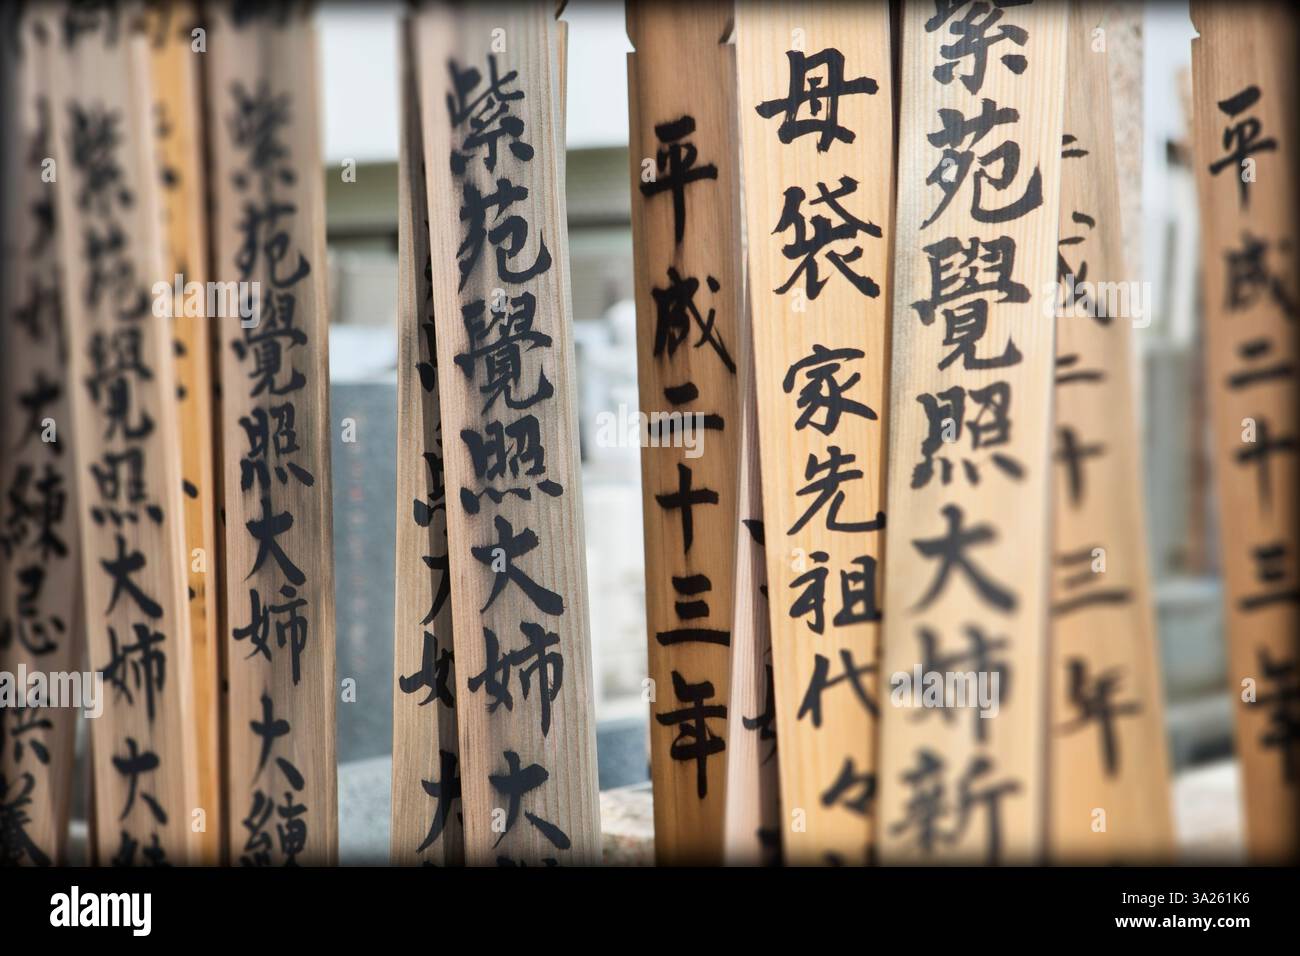 平成二十三年
平成二十三年
紫苑覺照大姉新
母袋家先祖代々
平成二十三年
紫苑覺照大姉大
大姉
紫苑覺照大姉大練
紫苑覺照大姉大練
大姉大練忌供養
alamy
Image ID: 3A261K6
www.alamy.com